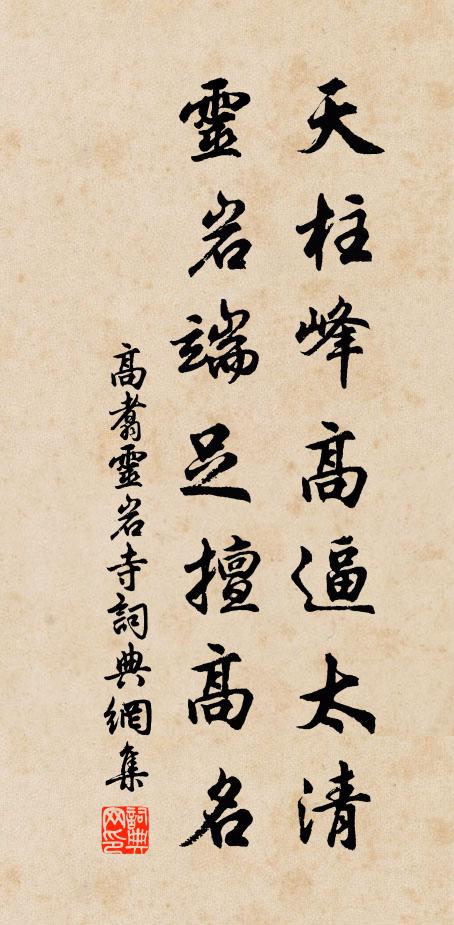 天柱峰高逼太清
靈岩端足擅高名
高翥靈岩寺詞典網集
詞典网印